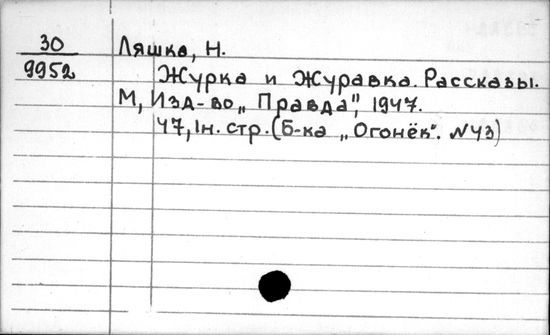 30 Ляшко, Н.
9952 Журка и Журавка. Рассказы.
М, Изд-во „Правда", 1947.
47, 1н. стр. (Б-ка „Огонёк". №43)